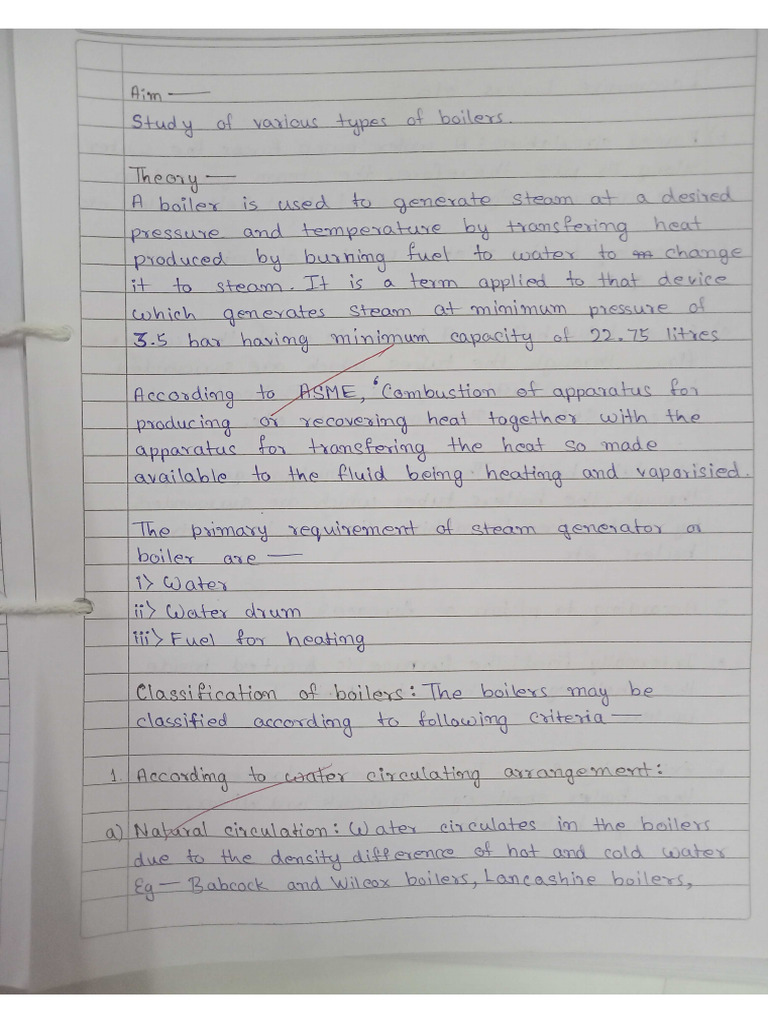 Aim —
Study of various types of boilers.
Theory —
A boiler is used to generate steam at a desired
pressure and temperature by transfering heat
produced by burning fuel to water to change
it to steam. It is a term applied to that device
which generates steam at minimum pressure of
3.5 bar having minimum capacity of 22.75 litres
According to ASME, ‘Combustion of apparatus for
producing or recovering heat together with the
apparatus for transfering the heat so made
available to the fluid being heating and vaporisied.
The primary requirement of steam generator or
boiler are —
i> Water
ii> Water drum
iii> Fuel for heating
Classification of boilers: The boilers may be
classified according to following criteria —
1. According to water circulating arrangement:
a) Natural circulation: Water circulates in the boilers
due to the density difference of hot and cold water
Eg — Babcock and Wilcox boilers, Lancashire boilers,